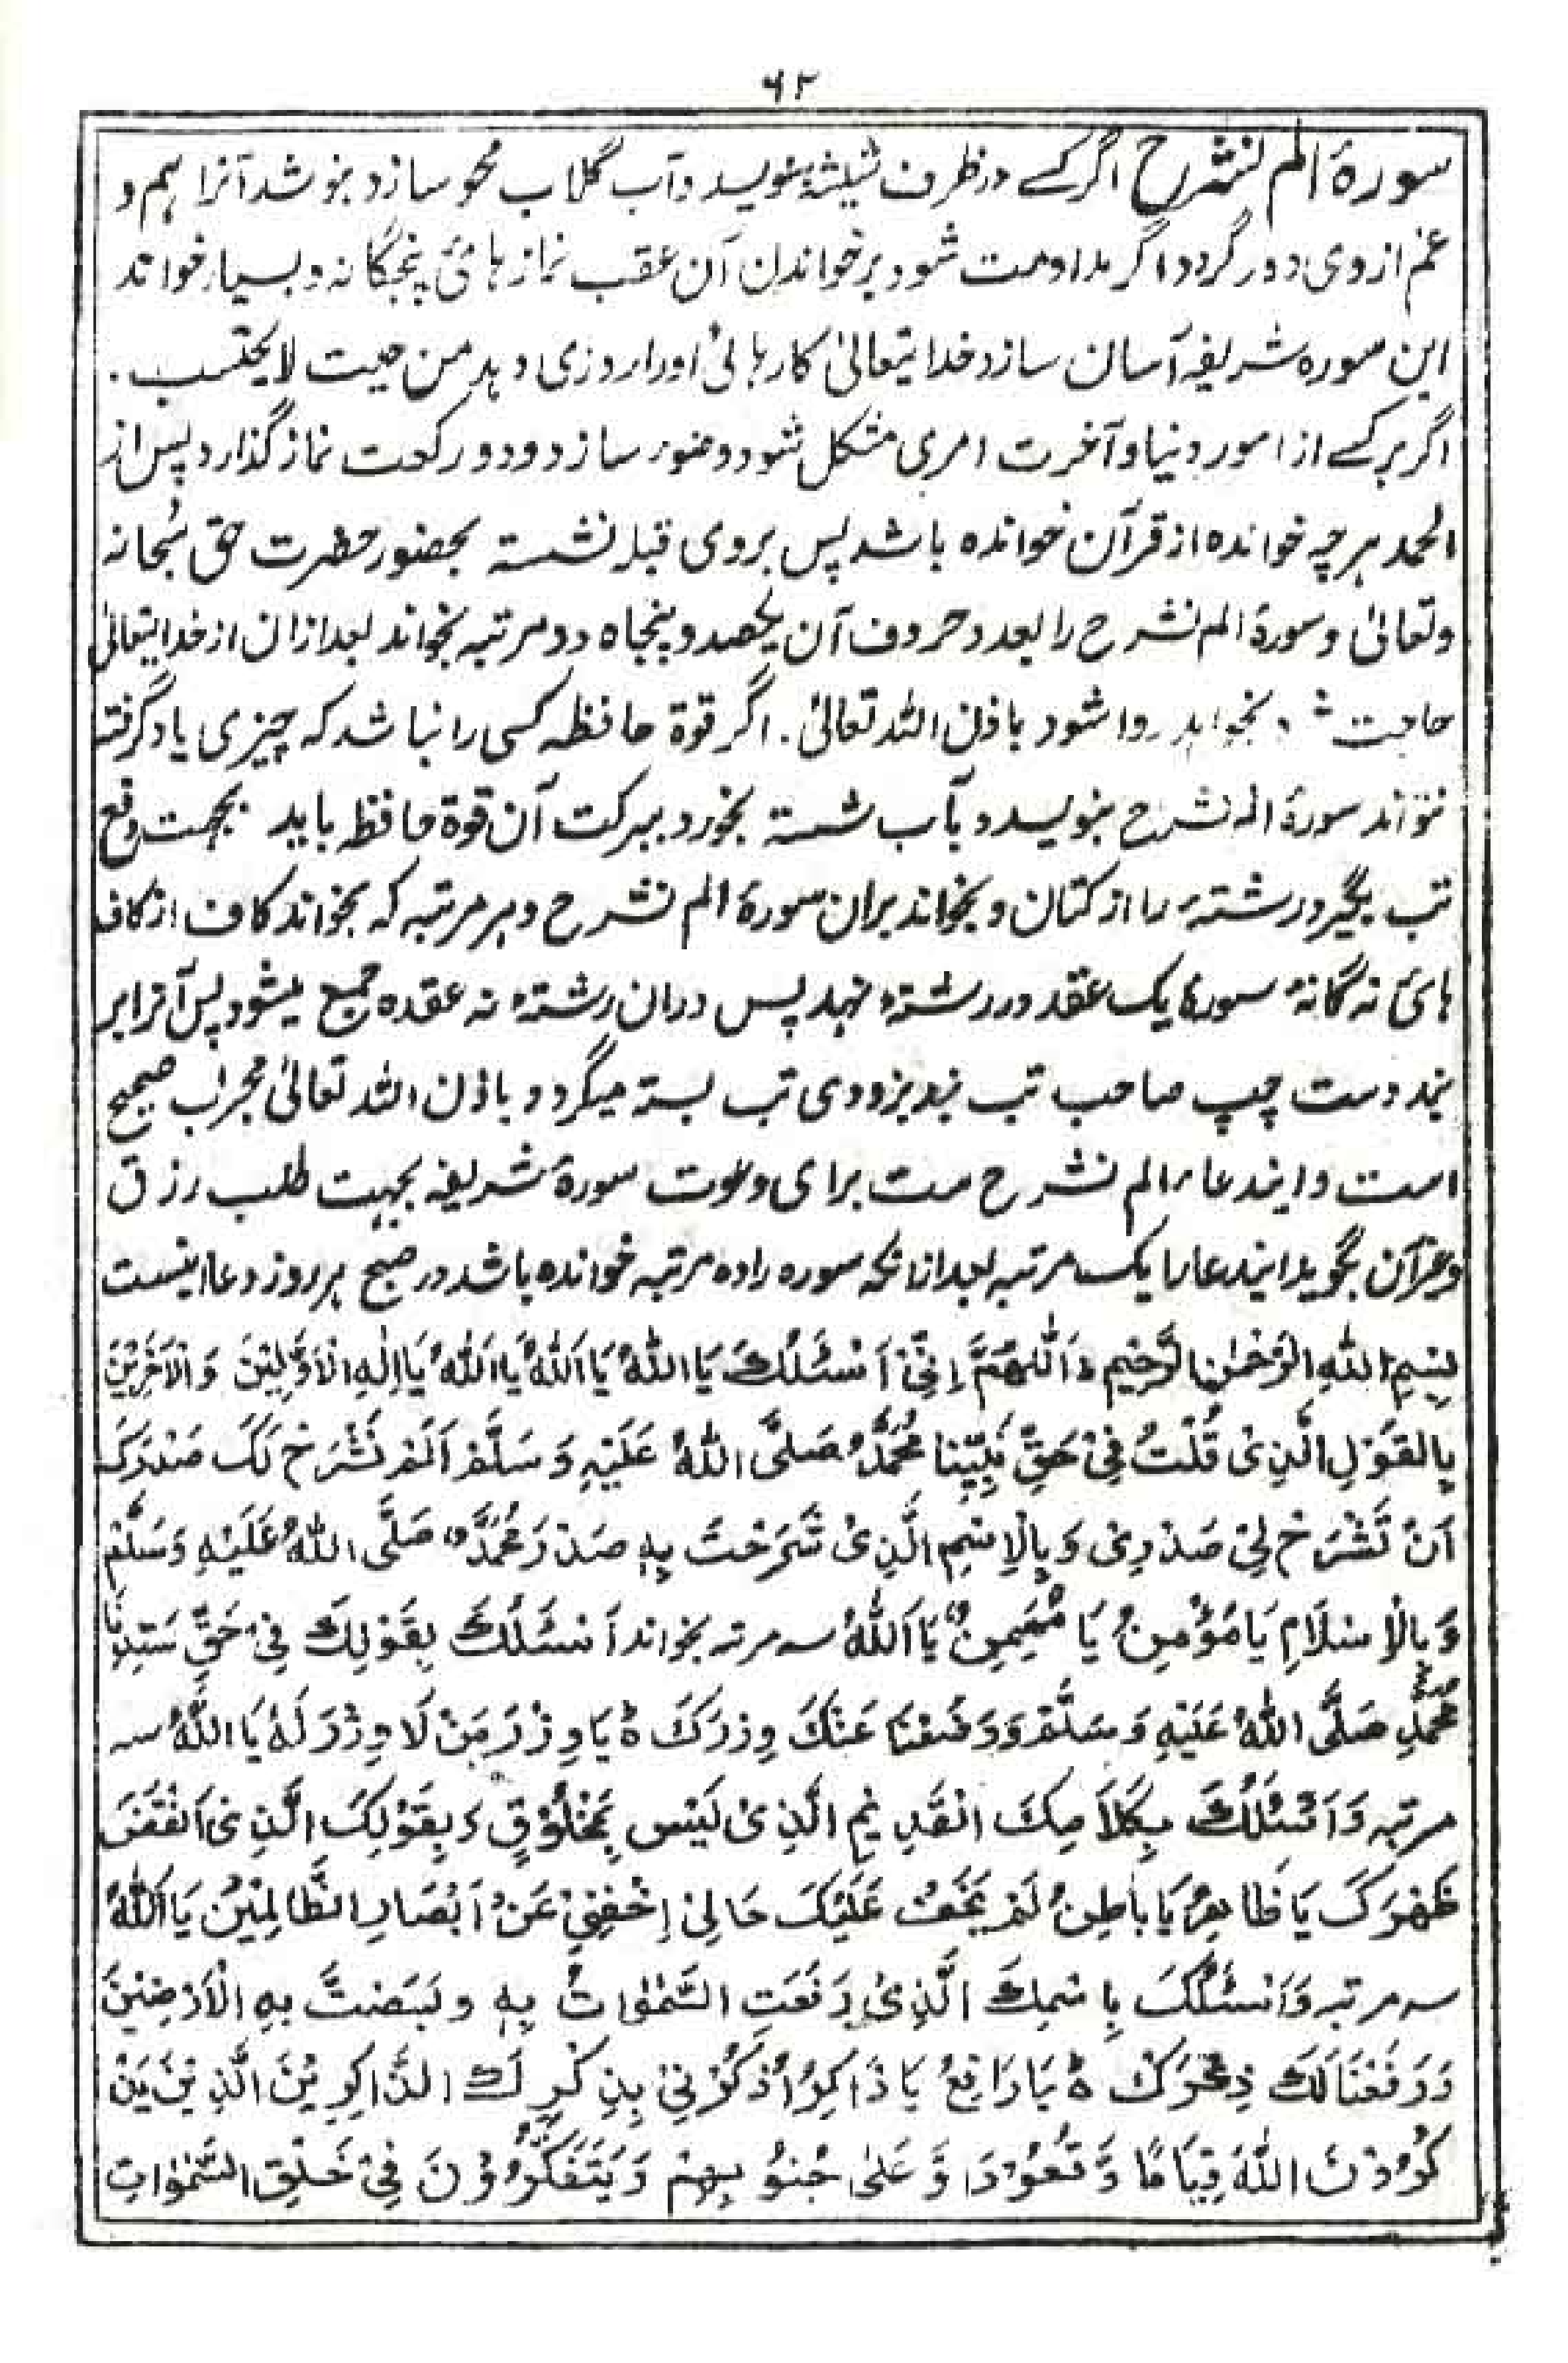 ۶۲
سورۂ الم نشرح اگر کسے در ظرف شیشۂ بنویسد و آب گلاب محو سازد و بنوشد آنرا ہم و
غم از وی دور گردد و اگر مداومت شود بر خواندن آن عقب نماز ہائ پنجگانہ و بسیار خواند
این سورہ شریفہ آسان سازد خدایتعالیٰ کارہائی او را روزی دہد من حیث لا یحتسب ۔
اگر بر کسے از امور دنیا و آخرت امری مشکل شود وضوء سازد و دو رکعت نماز گذارد پس از
الحمد ہر چہ خواندہ از قرآن خواندہ باشد پس بروی قبلہ نشستہ بحضور حضرت حق سُبحانہ
وتعالیٰ و سورۂ الم نشرح را بعدد حروف آن یکصد و پنجاہ و دو مرتبہ بخواند بعد ازان از خدایتعالیٰ
حاجت بخواہد روا شود باذن اللہ تعالیٰ. اگر قوۃ حافظہ کسی را نباشد کہ چیزی یاد گرفتہ
نتواند سورۂ الم نشرح بنویسد و بآب شستہ بخورد ببرکت آن قوۃ حافظہ یابد . بجہت دفع
تب بگیرد رشتۂ را از کتان و بخواند بران سورۂ الم نشرح و ہر مرتبہ کہ بخواند کاف از کاف
ہائ نہ گانۂ سورہ یک عقد در رشتۂ نہد پس دران رشتۂ نہ عقدہ جمع میشود پس آنرا بر
بند دست چپ صاحب تب بندد بزودی تب بستہ میگردد باذن اللہ تعالیٰ مجرب صحیح
است و ایندعا الم نشرح ست برای دعوت سورۂ شریفہ بجہت طلب رزق
وغیر آن بگوید ایندعا را یک مرتبہ بعد ازانکہ سورہ را دہ مرتبہ خواندہ باشد در صبح ہر روز دعا اینست
بِسْمِ اللّٰهِ الرَّحْمٰنِ الرَّحِیْمِ ہ اَللّٰهُمَّ اِنِّیْ اَسْئَلُكَ یَا اَللّٰهُ یَا اَللّٰهُ یَا اَللّٰهُ یَا اِلٰهِ الْاَوَّلِیْنَ وَالْاٰخِرِیْنَ
بِالْقَوْلِ الَّذِیْ قُلْتُ فِیْ حَقِّ نَبِیِّنَا مُحَمَّدٍ صَلَّی اللّٰهُ عَلَیْهِ وَ سَلَّمَ اَلَمْ نَشْرَحْ لَكَ صَدْرَكَ
اَنْ تَشْرَحْ لِیْ صَدْرِیْ وَ بِالْاِسْمِ الَّذِیْ شَرَحْتَ بِهٖ صَدْرَ مُحَمَّدٍ صَلَّی اللّٰهُ عَلَیْهِ وَسَلَّمَ
وَ بِالْاِسْلَامِ یَا مُؤْمِنُ یَا مُهَیْمِنُ یَا اَللّٰهُ سہ مرتبہ بخواند اَسْئَلُكَ بِقَوْلِكَ فِیْ حَقِّ سَیِّدِنَا
مُحَمَّدٍ صَلَّی اللّٰهُ عَلَیْهِ وَ سَلَّمَ وَ وَضَعْنَا عَنْكَ وِزْرَكَ ہ یَا وِزْرَ مَنْ لَا وِزْرَ لَهٗ یَا اَللّٰهُ سہ
مرتبہ وَ اَسْئَلُكَ بِكَلَامِكَ الْقَدِیْمِ الَّذِیْ لَیْسَ بِمَخْلُوْقٍ وَ بِقَوْلِكَ الَّذِیْ اَنْقَضَ
ظَهْرَكَ یَا ظَاهِرُ یَا بَاطِنُ لَمْ یَخْفَ عَلَیْكَ حَالِیْ اِخْفِنِیْ عَنْ اَبْصَارِ الظَّالِمِیْنَ یَا اَللّٰهُ
سہ مرتبہ وَ اَسْئَلُكَ بِاسْمِكَ الَّذِیْ رَفَعَتِ السَّمٰوَاتُ بِهٖ و بَسَطْتَ بِهِ الْاَرْضِیْنَ
وَ رَفَعْنَا لَكَ ذِكْرَكَ ہ یَا رَافِعُ یَا ذَاكِرُ اُذْكُرْنِیْ بِذِكْرِكَ الذَّاكِرِیْنَ الَّذِیْنَ یَذْ
كُرُوْنَ اللّٰهَ قِیَامًا وَّ قُعُوْدًا وَّ عَلٰی جُنُوْبِهِمْ وَ یَتَفَكَّرُوْنَ فِیْ خَلْقِ السَّمٰوَاتِ